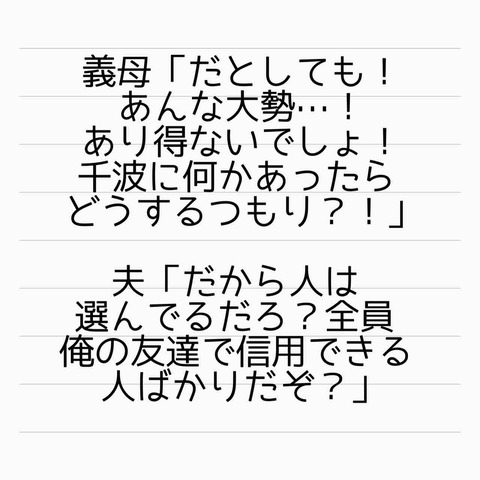 義母「だとしても！
あんな大勢…！
あり得ないでしょ！
千波に何かあったら
どうするつもり？！」
夫「だから人は
選んでるだろ？全員
俺の友達で信用できる
人ばかりだぞ？」